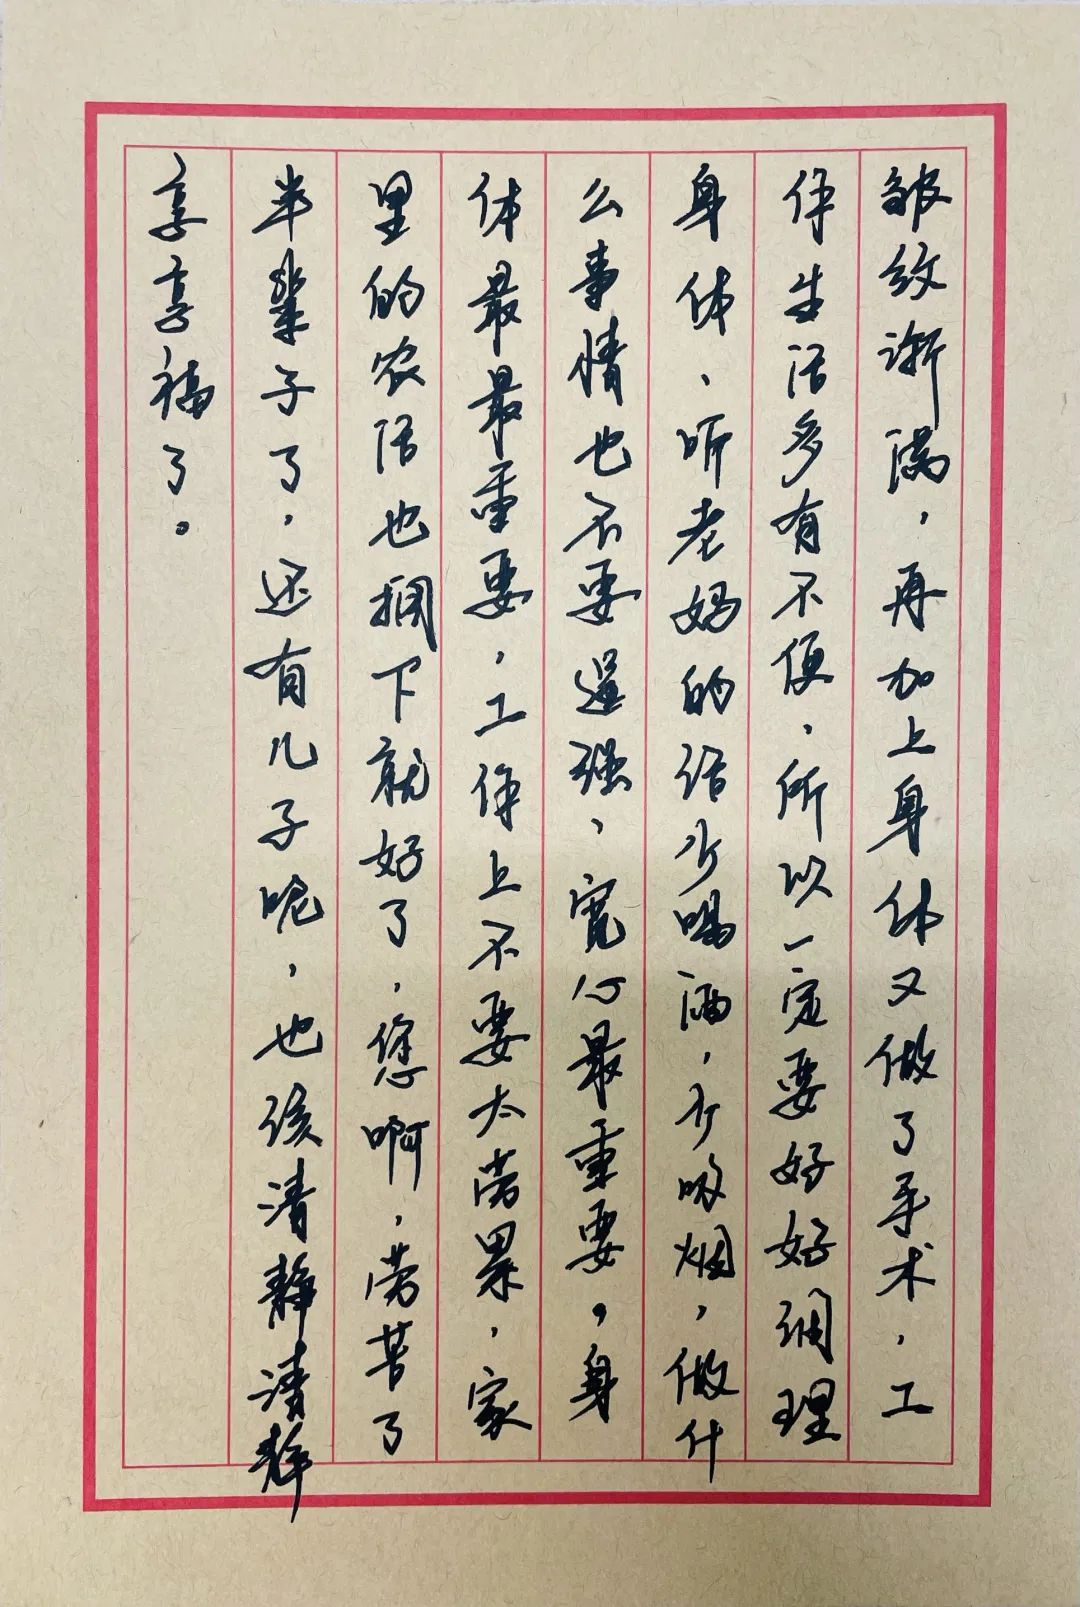 皱纹渐满，再加上身体又做了手术，工
作生活多有不便，所以一定要好好调理
身体、听老妈的话少喝酒，少吸烟，做什
么事情也不要逞强，宽心最重要。身
体最最重要，工作上不要太劳累，家
里的农活也搁下就好了，您啊，劳苦了
半辈子了，还有儿子呢，也该清静清静
享享福了。